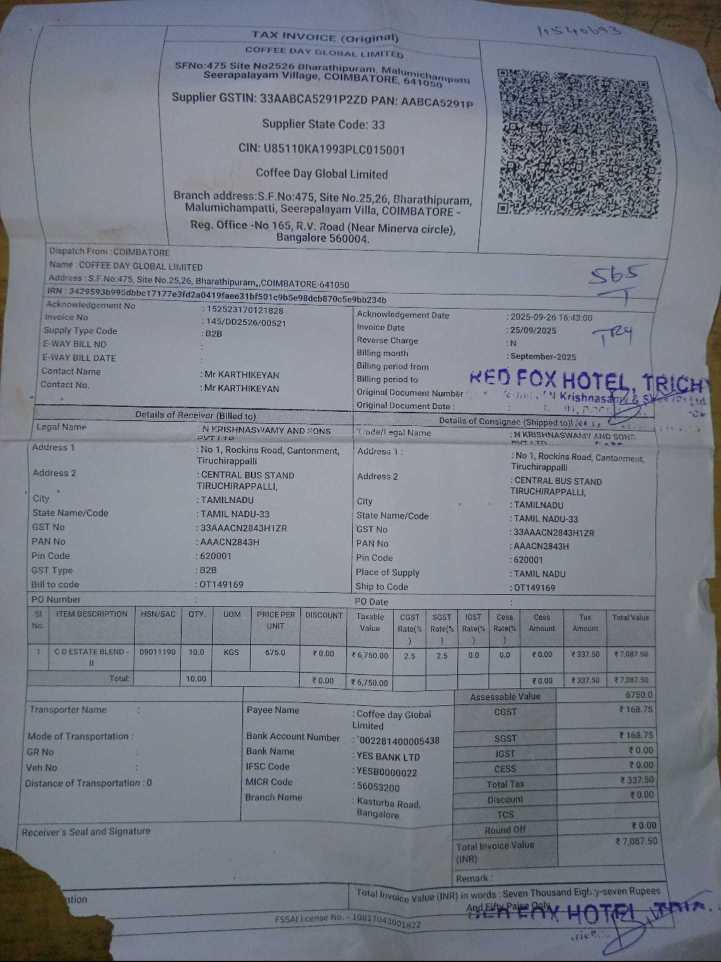 TAX INVOICE (Original)
COFFEE DAY GLOBAL LIMITED
SFNo:475 Site No2526 Bharathipuram, Malumichampatti
Seerapalayam Village, COIMBATORE, 641050
Supplier GSTIN: 33AABCA5291P2ZD PAN: AABCA5291P
Supplier State Code: 33
CIN: U85110KA1993PLC015001
Coffee Day Global Limited
Branch address:S.F.No:475, Site No.25,26, Bharathipuram,
Malumichampatti, Seerapalayam Villa, COIMBATORE -
Reg. Office -No 165, R.V. Road (Near Minerva circle),
Bangalore 560004.
565
T
TRY
Dispatch From :COIMBATORE
Name :COFFEE DAY GLOBAL LIMITED
Address : S.F.No:475, Site No.25,26, Bharathipuram,,COIMBATORE-641050
IRN : 3429593b995dbbe17177e3fd2a0419faee31bf501c9b5e98dcb870c5e9bb234b
Acknowledgement No : 152523170121828
Invoice No : 145/DD2526/00521
Supply Type Code : B2B
E-WAY BILL NO :
E-WAY BILL DATE :
Contact Name : Mr KARTHIKEYAN
Contact No. : Mr KARTHIKEYAN
Acknowledgement Date : 2025-09-26 16:43:00
Invoice Date : 25/09/2025
Reverse Charge : N
Billing month : September-2025
Billing period from
Billing period to
Original Document Number
Original Document Date :
RED FOX HOTEL, TRICHY
N Krishnasamy &
Details of Receiver (Billed to)
Legal Name : N KRISHNASWAMY AND SONS
PVT LTD
Address 1 : No 1, Rockins Road, Cantonment,
Tiruchirappalli
Address 2 : CENTRAL BUS STAND
TIRUCHIRAPPALLI,
City : TAMILNADU
State Name/Code : TAMIL NADU-33
GST No : 33AAACN2843H1ZR
PAN No : AAACN2843H
Pin Code : 620001
GST Type : B2B
Bill to code : OT149169
PO Number :
Details of Consignee (Shipped to)
Trade/Legal Name : N KRISHNASWAMY AND SONS
PVT LTD
Address 1 : : No 1, Rockins Road, Cantonment,
Tiruchirappalli
Address 2 : CENTRAL BUS STAND
TIRUCHIRAPPALLI,
City : TAMILNADU
State Name/Code : TAMIL NADU-33
GST No : 33AAACN2843H1ZR
PAN No : AAACN2843H
Pin Code : 620001
Place of Supply : TAMIL NADU
Ship to Code : OT149169
PO Date :
Sl No. ITEM DESCRIPTION HSN/SAC QTY. UOM PRICE PER UNIT DISCOUNT Taxable Value CGST Rate(%) SGST Rate(%) IGST Rate(%) Cess Rate(%) Cess Amount Tax Amount Total Value
1 C D ESTATE BLEND - II 09011190 10.0 KGS 675.0 ₹ 0.00 ₹ 6,750.00 2.5 2.5 0.0 0.0 ₹ 0.00 ₹ 337.50 ₹ 7,087.50
Total: 10.00 ₹ 0.00 ₹ 6,750.00 ₹ 0.00 ₹ 337.50 ₹ 7,087.50
Transporter Name :
Mode of Transportation :
GR No :
Veh No :
Distance of Transportation : 0
Payee Name : Coffee day Global
Limited
Bank Account Number : `002281400005438
Bank Name : YES BANK LTD
IFSC Code : YESB0000022
MICR Code : 56053200
Branch Name : Kasturba Road,
Bangalore
Assessable Value 6750.0
CGST ₹ 168.75
SGST ₹ 168.75
IGST ₹ 0.00
CESS ₹ 0.00
Total Tax ₹ 337.50
Discount ₹ 0.00
TCS
Round Off ₹ 0.00
Total Invoice Value
(INR) ₹ 7,087.50
Remark :
Receiver's Seal and Signature
Total Invoice Value (INR) in words : Seven Thousand Eighty-seven Rupees
And Fifty Paise Only
RED FOX HOTEL,
FSSAI License No. - 10017043001822